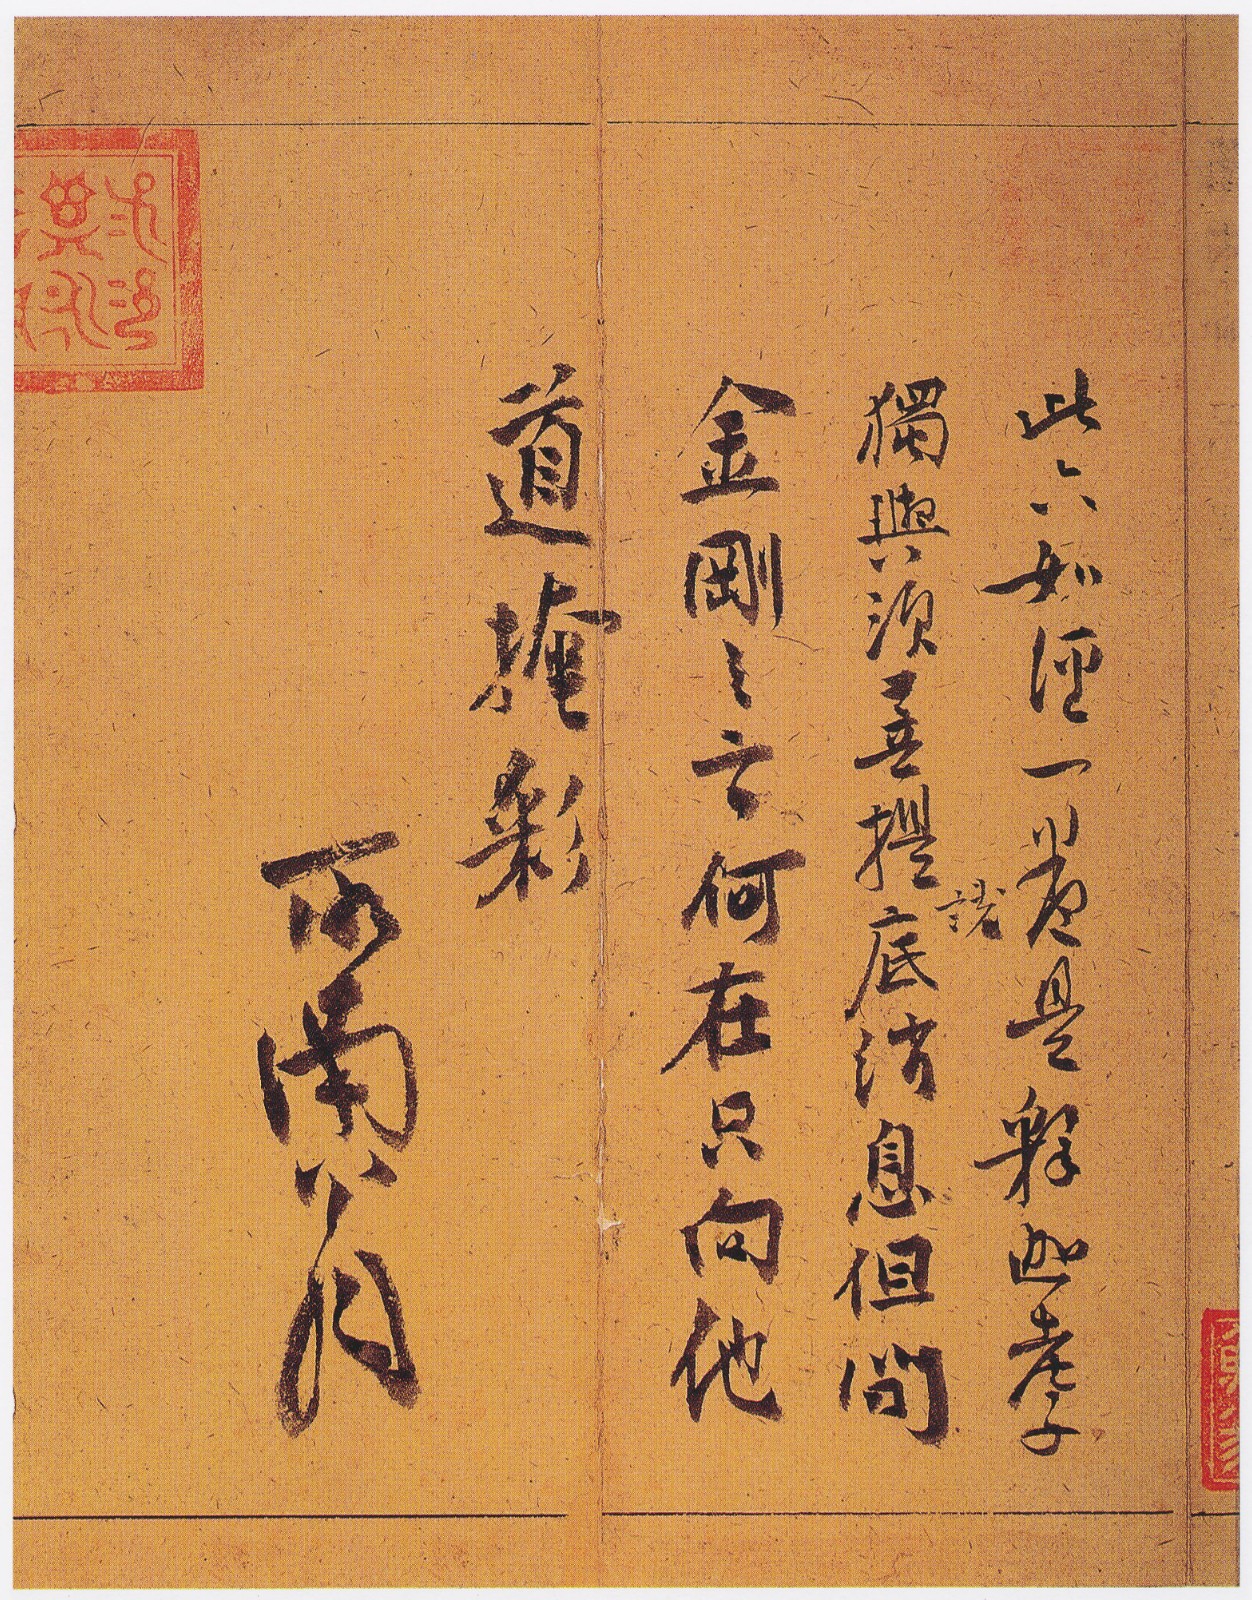 此六如經一卷是釋迦老子
獨與須菩提說底消息但問
金剛之言何在只向他
道掩彩
所南翁